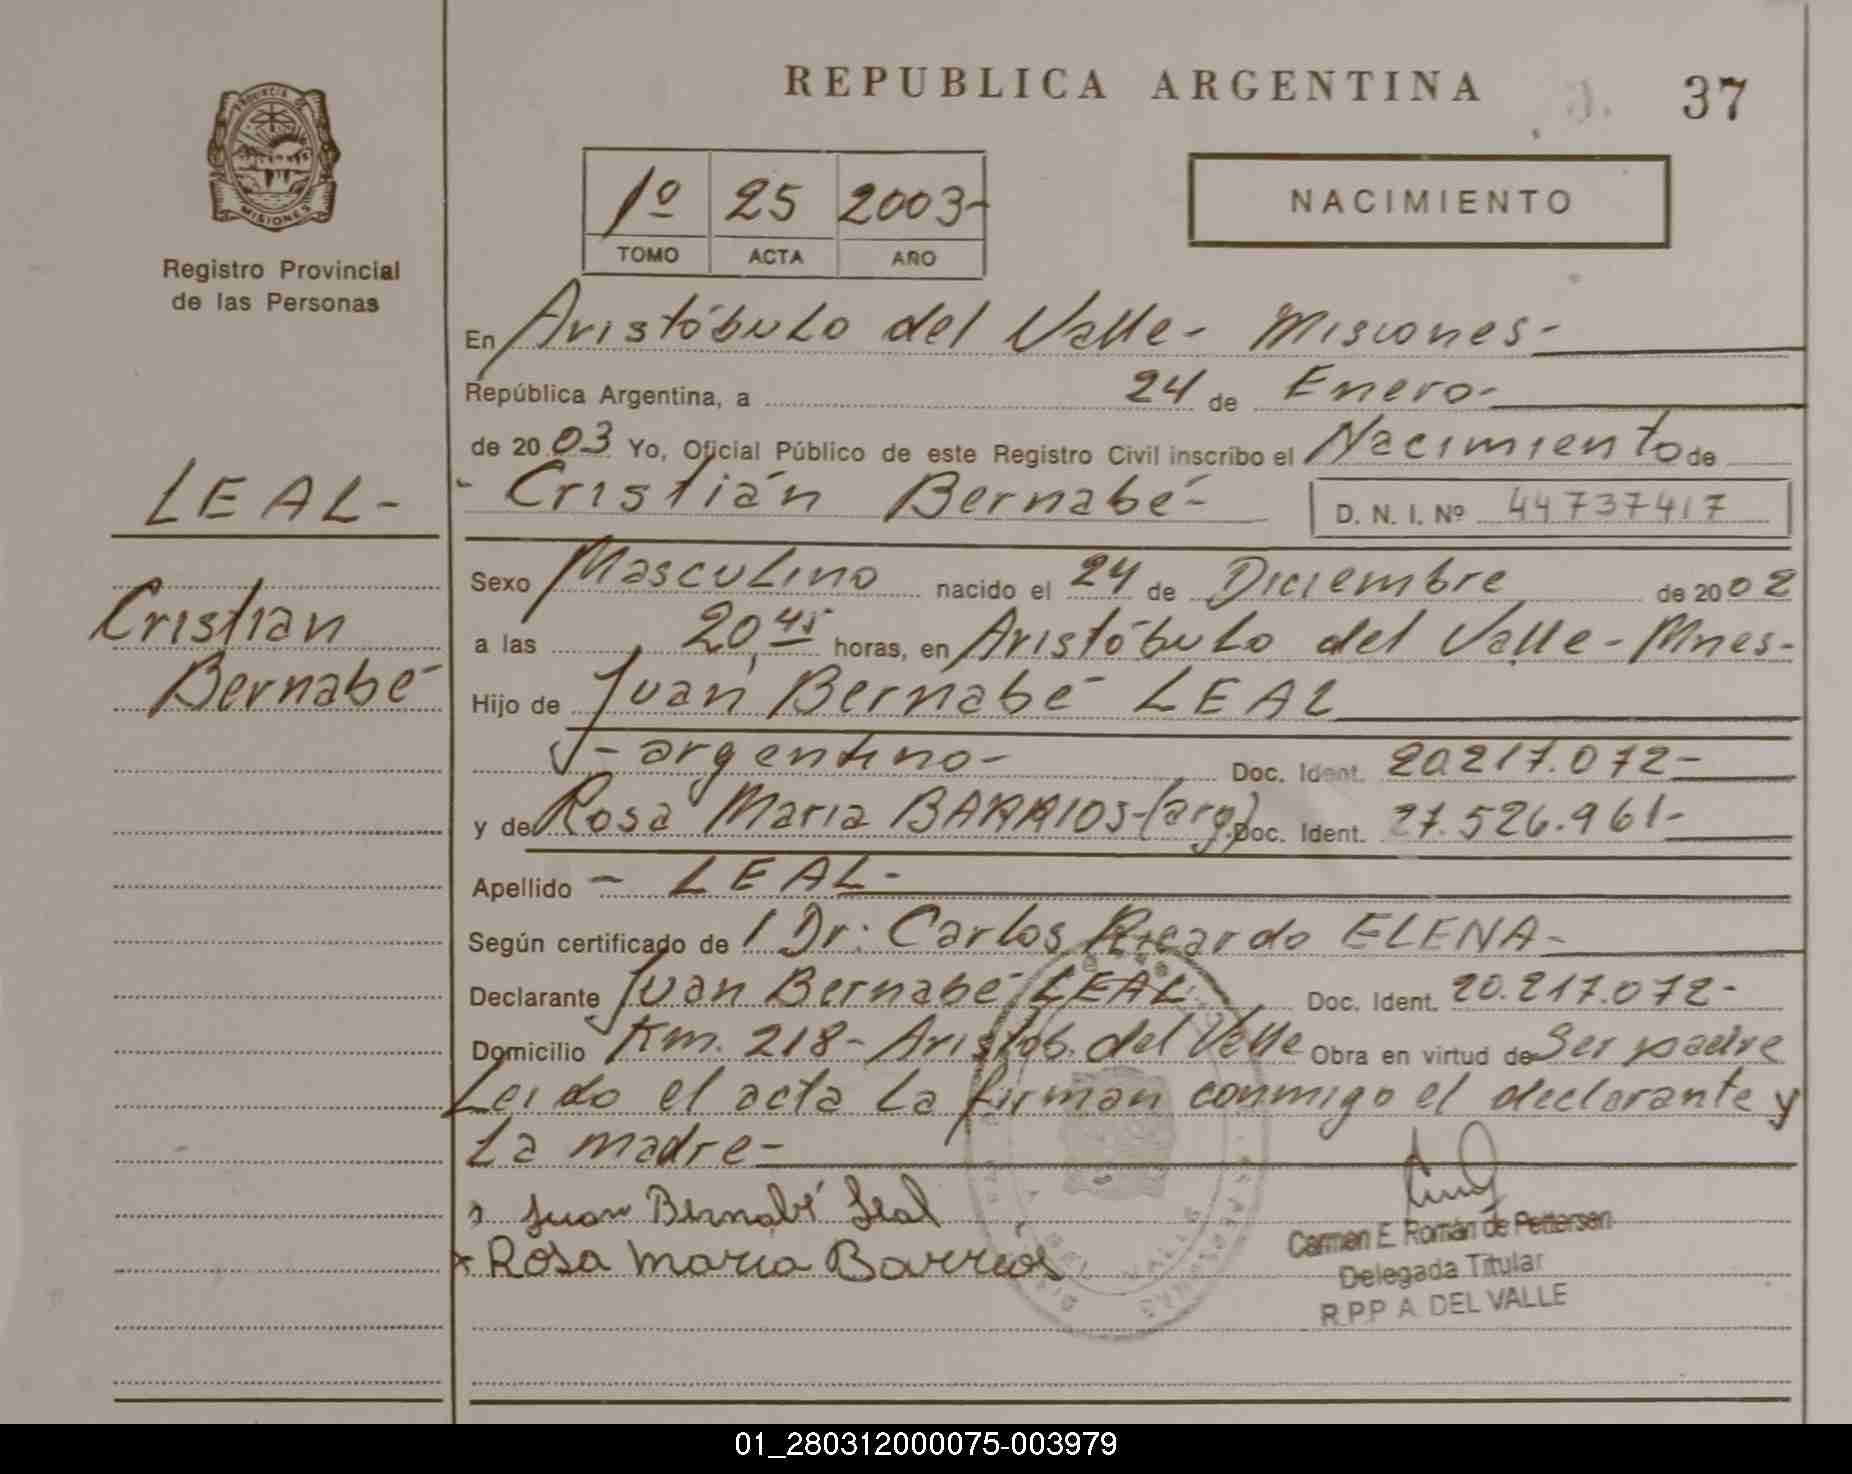 REPUBLICA ARGENTINA
37
PROVINCIA DE
MISIONES
Registro Provincial
de las Personas
1º 25 2003-
TOMO ACTA AÑO
NACIMIENTO
En Aristóbulo del Valle - Misiones -
República Argentina, a 24 de Enero -
de 20 03 Yo, Oficial Público de este Registro Civil inscribo el Nacimiento de
- Cristián Bernabé - D. N. I. Nº 44737417
LEAL -
Cristian
Bernabé
Sexo Masculino nacido el 24 de Diciembre de 20 02
a las 20,45 horas, en Aristóbulo del Valle - Mnes -
Hijo de Juan Bernabé LEAL
- argentino - Doc. Ident. 20.217.072 -
y de Rosa Maria BARRIOS - (arg) Doc. Ident. 27.526.961 -
Apellido - LEAL -
Según certificado de Dr. Carlos Ricardo ELENA -
Declarante Juan Bernabé LEAL Doc. Ident. 20.217.072 -
Domicilio Km. 218 - Aristób. del Valle Obra en virtud de Ser padre
Leido el acta la firman conmigo el declarante y
la madre -
Juan Bernabé Leal
x Rosa María Barrios
Carmen E. Román de Pettersen
Delegada Titular
R.P.P. A. DEL VALLE
01_280312000075-003979